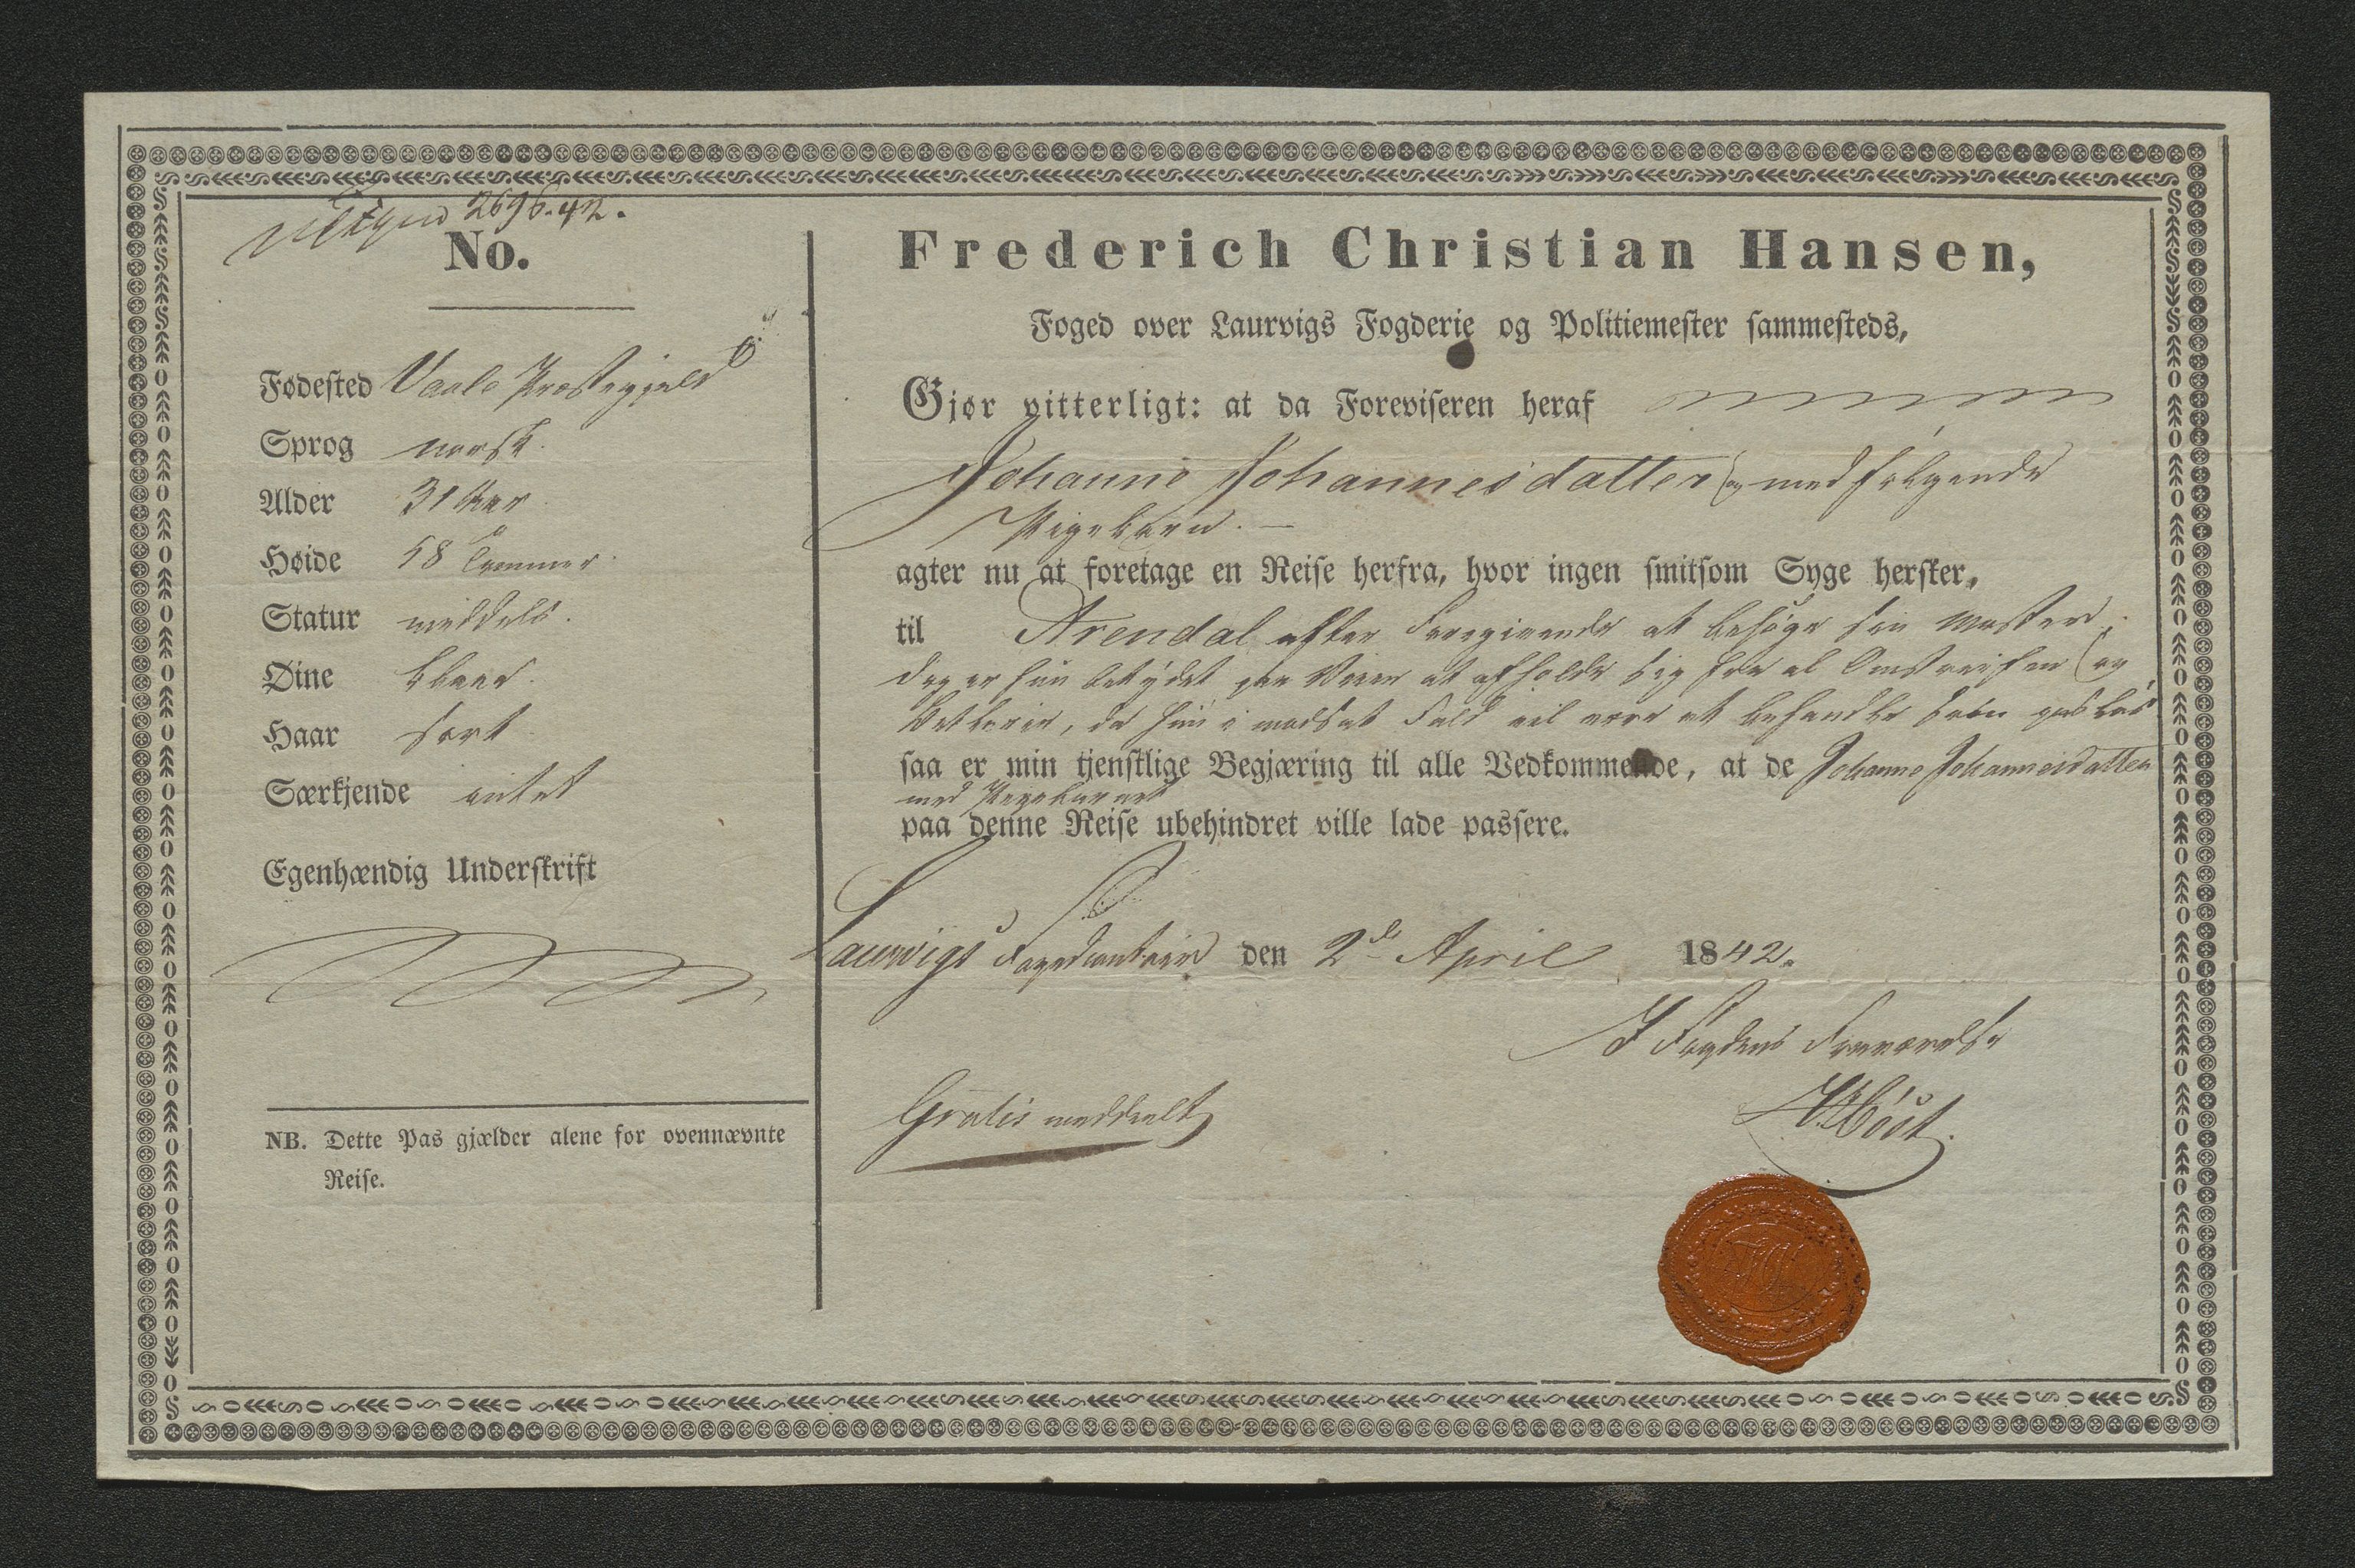 2696.42.
No.
Fødested Vaale Præstegjeld
Sprog norsk.
Alder 31 Aar
Høide 58 Tommer.
Statur middels.
Øine blaae.
Haar sort
Særkjende intet
Egenhændig Underskrift
NB. Dette Pas gjælder alene for ovennævnte
Reise.
Frederich Christian Hansen,
Foged over Laurvigs Fogderie og Politiemester sammesteds,
Gjør vitterligt: at da Foreviseren heraf
Johanne Johannesdatter og medfølgende
Pigebarn. —
agter nu at foretage en Reise herfra, hvor ingen smitsom Syge hersker,
til Arendal efter Foregivende at besøge sin Moster,
dog er hun betydet paa Veien at afholde sig fra al Omstreifen og
Betlerie, da hun i modsat Fald vil være at behandle som pasløs
saa er min tjenstlige Begjæring til alle Vedkommende, at de Johanne Johannesdatter
med Pigebarnet
paa denne Reise ubehindret ville lade passere.
Laurvigs Fogedcontoir den 2de April 1842.
I Fogdens Fraværelse
Gratis meddeelt
Höst.